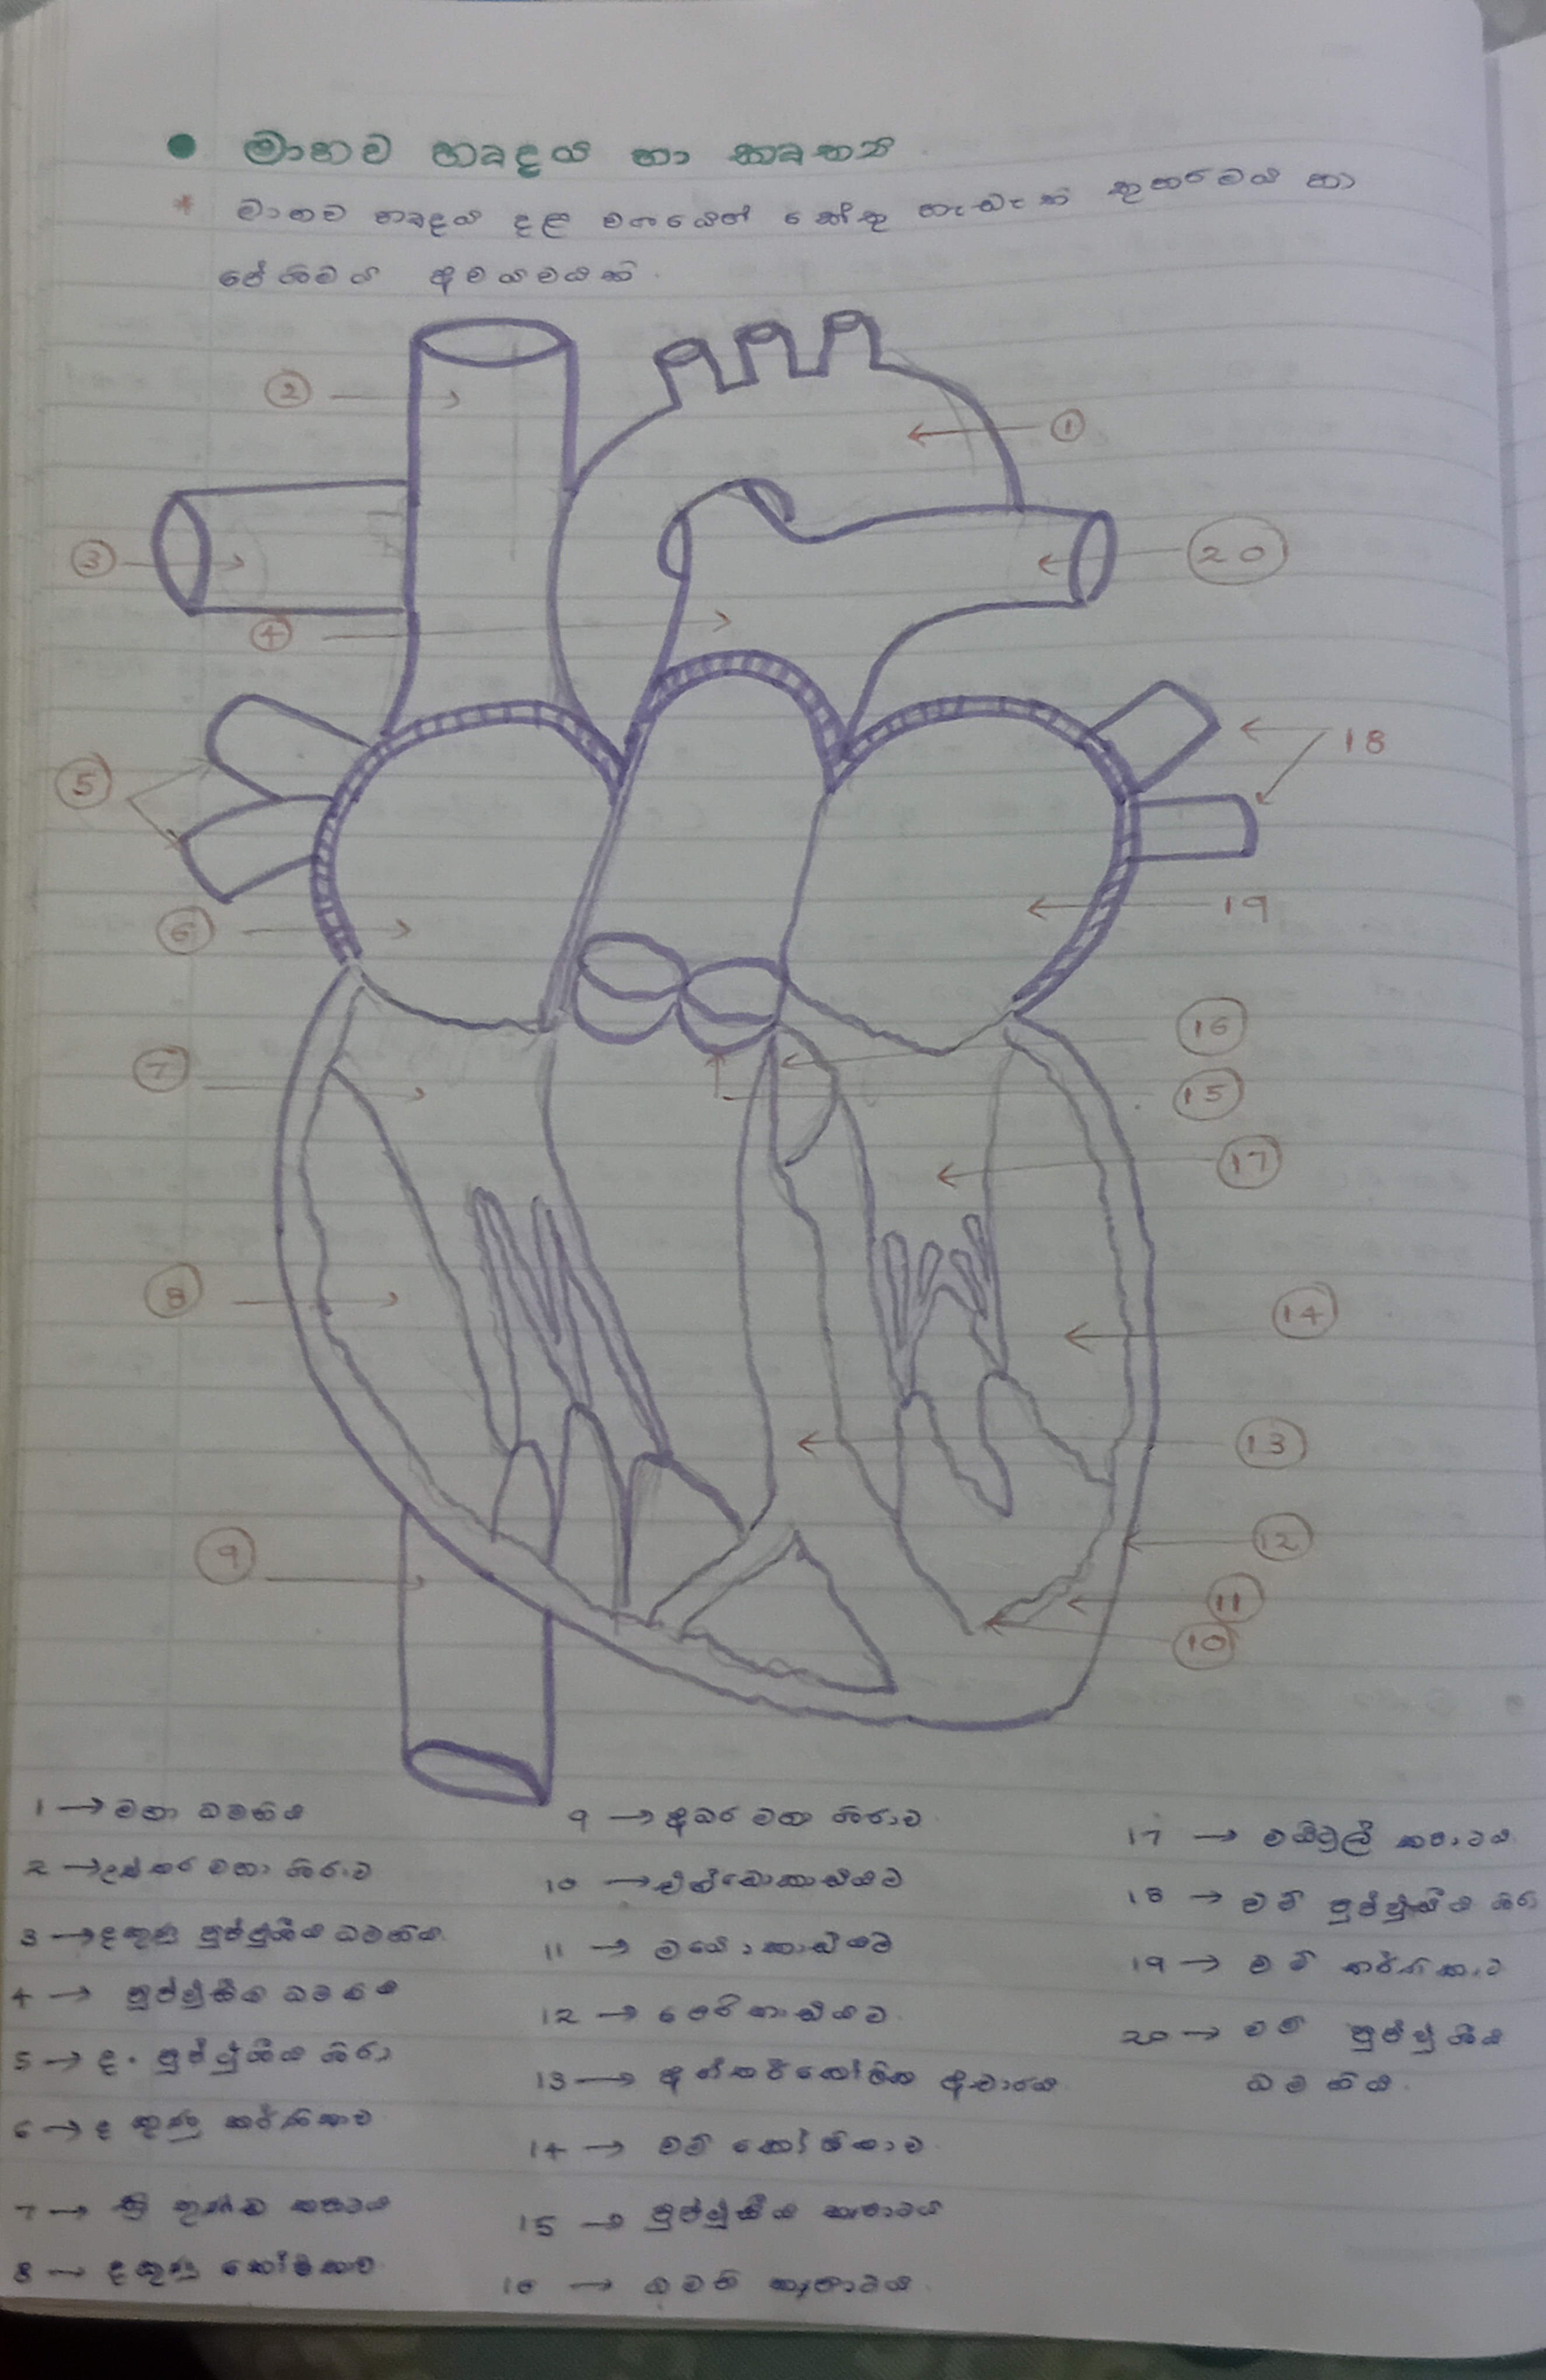 මානව හෘදය හා කෘත්‍ය
* මානව හෘදය දළ වශයෙන් කේතු හැඩැති කුහරමය හා
පේශිමය අවයවයකි.
2
1
3
20
4
5
18
6
19
7
16
15
17
8
14
13
9
12
11
10
1 → මහා ධමනිය
2 → උත්තර මහා ශිරාව
3 → දකුණු පුප්ඵුශීය ධමනිය
4 → පුප්ඵුශීය ධමනිය
5 → ද. පුප්ඵුශීය ශිරා
6 → දකුණු කර්ණිකාව
7 → ත්‍රි තුණ්ඩ කපාටය
8 → දකුණු කෝෂිකාව
9 → අධර මහා ශිරාව
10 → එන්ඩොකාඩියම
11 → මයොකාඩියම
12 → පෙරිකාඩියම
13 → අන්තර්කෝෂික ආචාරය
14 → වම් කෝෂිකාව
15 → පුප්ඵුශීය කපාටය
16 → ධමනි කපාටය
17 → මයිට්‍රල් කපාටය
18 → වම් පුප්ඵුශීය ශිරා
19 → වම් කර්ණිකාව
20 → වම් පුප්ඵුශීය
ධමනිය.